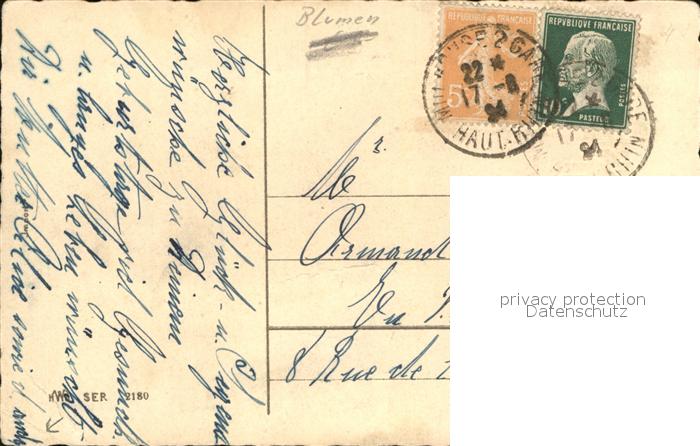 Blumen
REPUBLIQUE FRANÇAISE
REPUBLIQUE FRANÇAISE
PASTEUR
POSTES
MULHOUSE 2 GARE
22
17 -8
HAUT-RHIN
Herzliche Glück- u. Segens
wünsche zu Deinem
Geburtstage viel Gesundh.
u. langes Leben wünscht
Dir
Mr.
Armand
8 Rue de
HWB SER 2180
privacy protection
Datenschutz